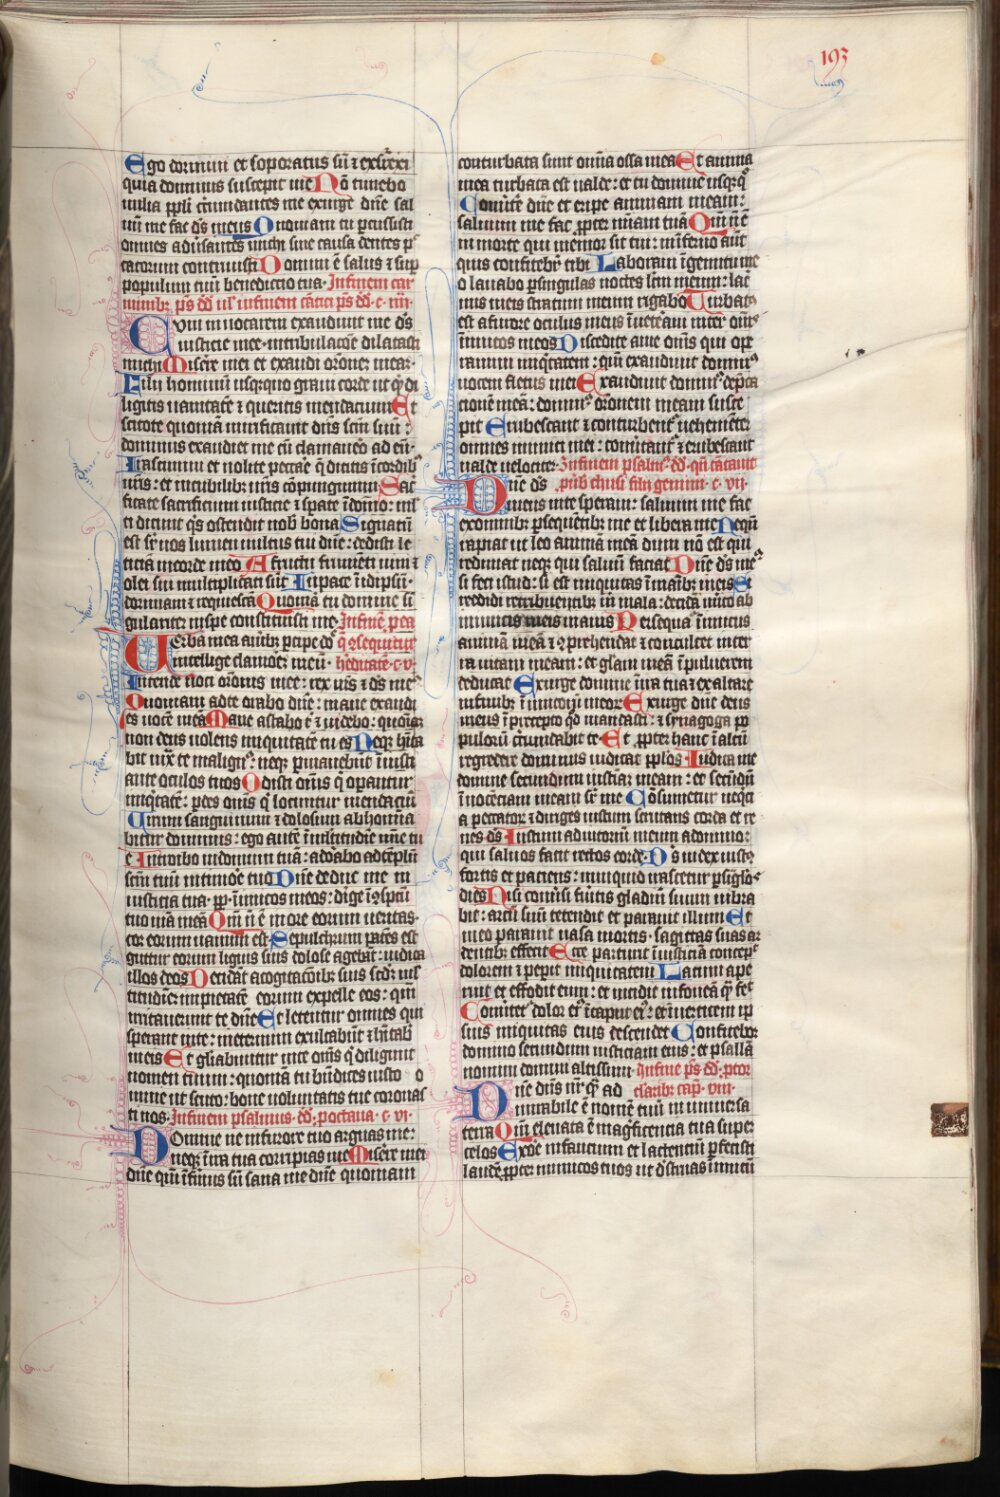 193
Ego dormiui et soporatus sū ⁊ exsurrexi
quia dominus suscepit me Nō timebo
milia ppli circūdantes me exurge dn̄e sal
uū me fac ds̄ meus Quoniam tu pcussisti
omnes adūsantes michi sine causa dentes pc̄
catorum contriuisti Domini ē salus ⁊ sup
populum tuū benedictio tua· In finem car
minibꝫ ps̄ dd̄ ul' in finem cātici ps̄ dd̄· c· iiii·
Cum inuocarem exaudiuit me ds̄
iusticie mee· in tribulacōe dilatasti
michi Miserē mei et exaudi orōnez meaz·
Filii hominū usqzquo graui corde ut qd di
ligitis uanitatē ⁊ queritis mendacium Et
scitote quoniā mirificauit dn̄s scm̄ suū:
dominus exaudiet me cū clamauero ad eū·
Irascimini et nolite peccare q̄ dicitis ī cordibꝫ
ur̄is: et in cubilibꝫ ur̄is cōpungimini Sac̄
ficate sacrificium iusticie ⁊ spate ī dom̄o: ml̄
ti dicunt qs̄ ostendit nob bona Signatū
est sr̄ nos lumen uultus tui dn̄e: dedisti le
ticiā in corde meo A fructu frumēti uini ⁊
olei sui multiplicati sūt In pace ī idipsū·
dormiam ⁊ requiescā Quoniā tu domine si
gulariter in spe constituisti me· In finē pea
Uerba mea auribꝫ pcipe do q̄ 9sequitur
intellige clamorē meū· hereditatē· c· v·
Intende uoci orōnis mee: rex ms̄ ⁊ ds̄ me9
Quoniam ad te orabo dn̄e: mane exaudi
es uocē meā Mane astabo t̄ ⁊ uidebo: quoniaz
non deus uolens iniquitatē tu es Neqꝫ hīta
bit iux̄ te malign9: neqꝫ pmanebūt īiusti
ante oculos tuos Odisti om̄s q̄ opantur
iniq̄tatē: pdes om̄s q̄ locuntur mendaciū
Uirum sanguinum ⁊ dolosum abhomīa
bitur dominus: ego autē ī multitudīe mīe tu
e Introibo in domum tuā: adorabo ad tēplū
scm̄ tuū in timore tuo Dn̄e deduc me in
iusticia tua· pp̄ īimicos meos: dirige ī 9spectu
tuo uiā meā Qm̄ nō ē ī ore eorum ueritas·
cor eorum uanum est· Sepulchrum patēs est
guttur eorum liguis suis dolose agebāt· iudica
illos deus Decidāt a cogitacōibꝫ suis scdꝫ ml̄
titudinē impietatē eorum expelle eos: qm̄
irritauerunt te dn̄e Et letentur omnes qui
sperant in te: in eternum exultabūt ⁊ hītab̄
in eis Et gl̄iabuntur in te om̄s q̄ diligunt
nomen tuum: quoniā tu bn̄dices iusto o
mine ut scuto: bone uoluntatis tue coronas
ti nos· In finem psalmus· dd̄· pro octaua· c· vi·
Domine ne in furore tuo arguas me:
neqꝫ ī ira tua corripias me Miserē mei
dn̄e qm̄ īfirmus sū sana me dn̄e quoniam
conturbata sunt om̄ia ossa mea Et anima
mea turbata est ualde: et tu domine usqꝫ q̄
Conuerte dn̄e et eripe animam meam:
saluum me fac ppter mīam tuā Qm̄ nō ē
in morte qui memor sit tui: in īferno aut̄
quis confitebr̄ tibi Laboraui ī gemitu me
o lauabo p singulas noctes lcm̄ meum: lac̄
mis meis stratum meum rigabo Turbatus
est a furore oculus meus īueteraui inter oms̄
īimicos meos Discedite a me om̄is qui ope
ramini iniq̄tatem: qm̄ exaudiuit domin9
uocem fletus mei Exaudiuit domin9 dep̄ca
cionē meā: domin9 orōnem meam susce
pit Erubescant ⁊ conturbent̄ uehemēter
omnes inimici mei: conuertant̄ ⁊ erubescant
ualde uelociter· In finem psalm9· dd̄· qm̄ cātauit
Dn̄e ds̄ pro ūbis chusi filii gemini· c· vii·
meus in te speraui: saluum me fac
ex omnibꝫ psequētibꝫ me et libera me Nequā
rapiat ut leo animā meā dum nō est qui
redimat neqꝫ qui saluū faciat Dn̄e ds̄ me9
si feci istud: si est iniquitas ī manibꝫ meis Si
reddidi retribuentibꝫ m̄ mala: decidā m̄ito ab
inimicis meis inanis Persequat̄ inimicus
animā meā ⁊ 9prehendat ⁊ conculcet in ter
ra uitam meam: et glām meā ī puluerem
deducat Exurge domine ī ira tua ⁊ exaltare
in finibꝫ īimicoꝝ meoꝝ Exurge dn̄e deus
meus ī precepto qd mandasti: ⁊ synagoga po
pulorū circūdabit te Et ppter hanc ī altū
regredere dominus iudicat pplos Iudica me
domine secundum iusticiā meam: et secūdū
ī nocēciam meam sr̄ me Cōsumetur neqci
a peccator ⁊ diriges iustum scrutans corda et re
nes ds̄ Iustum adiutoriū meum a domino:
qui saluos facit rectos corde Ds̄ iudex iustꝫ
fortis et paciens: nunquid irascetur p sigl̄os
dies Nisi conūsi fūitis gladiū suum uibra
bit: arcū suū tetendit et parauit illum Et
in eo parauit uasa mortis· sagittas suas ar
dentibꝫ effecit Ecce parturit īiusticiā concep
dolorem ⁊ pepit iniquitatem Lacum ape
ruit et effodit eum: et incidit in foueā qm̄ fec̄
Conuertet̄ dolor ei9 ī caput ei9: et ī uerticem ip
sius iniquitas eius descendet Confitebor
domino secundum iusticiam eius: et psallā
nomini domini altissimi· In finē ps̄ dd̄· p tor
Dn̄e dn̄s nr̄ q̄ ad claribꝫ cap̄· viii·
mirabile ē nomē tuū in uniuersa
terra Qm̄ eleuata ē magficentia tua super
celos Ex ore infantium et lactentiū pfecisti
laudē ppter inimicos tuos ut dstruas inimicū